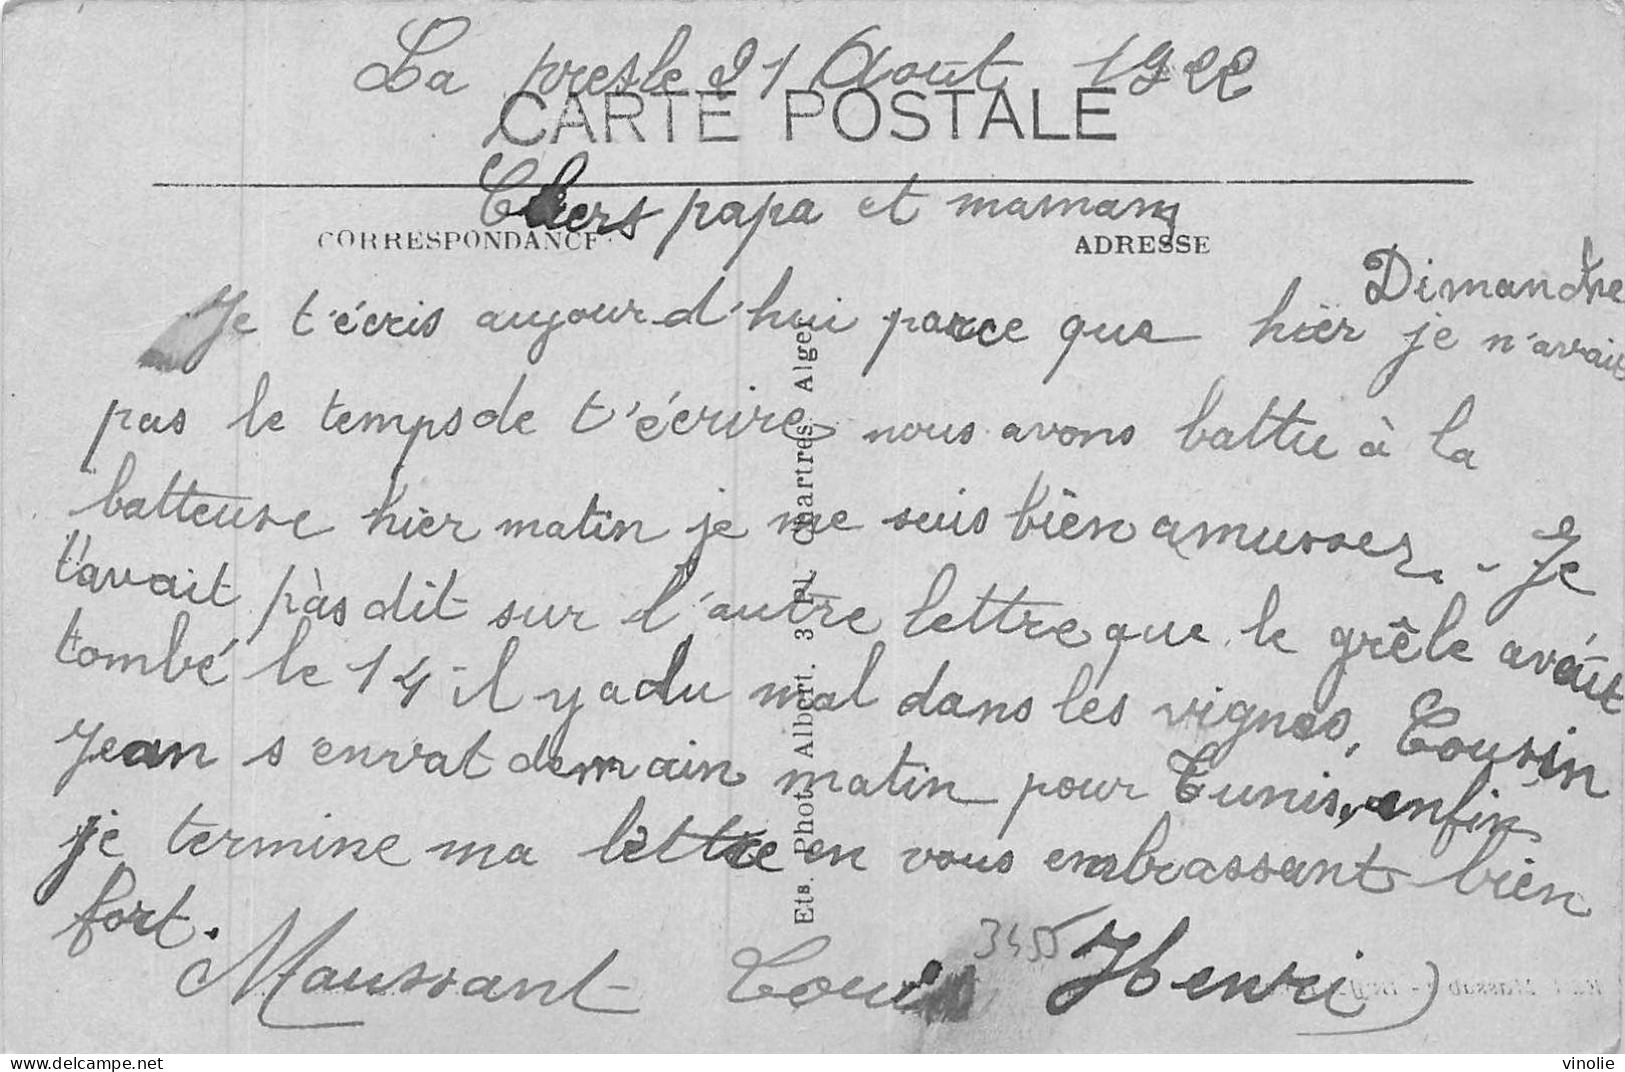 La presle 21 Aout 1922
CARTE POSTALE
Chers papa et maman
CORRESPONDANCE
ADRESSE
Dimanche
Je t'écris aujourd'hui parce que hier je n'avait
pas le temps de t'écrire nous avons battu à la
batteuse hier matin je me suis bien amusser. - Je
t'avait pas dit sur l'autre lettre que le grêle avait
tombé le 14 il y a du mal dans les vignes, Cousin
Jean s'en vat demain matin pour Tunis, enfin
je termine ma lettre en vous embrassant bien
fort.
Maussant Henri
3455
Ets. Phot. Albert. 3 Pl. Chartres. Alger
delcampe.net
vinolie